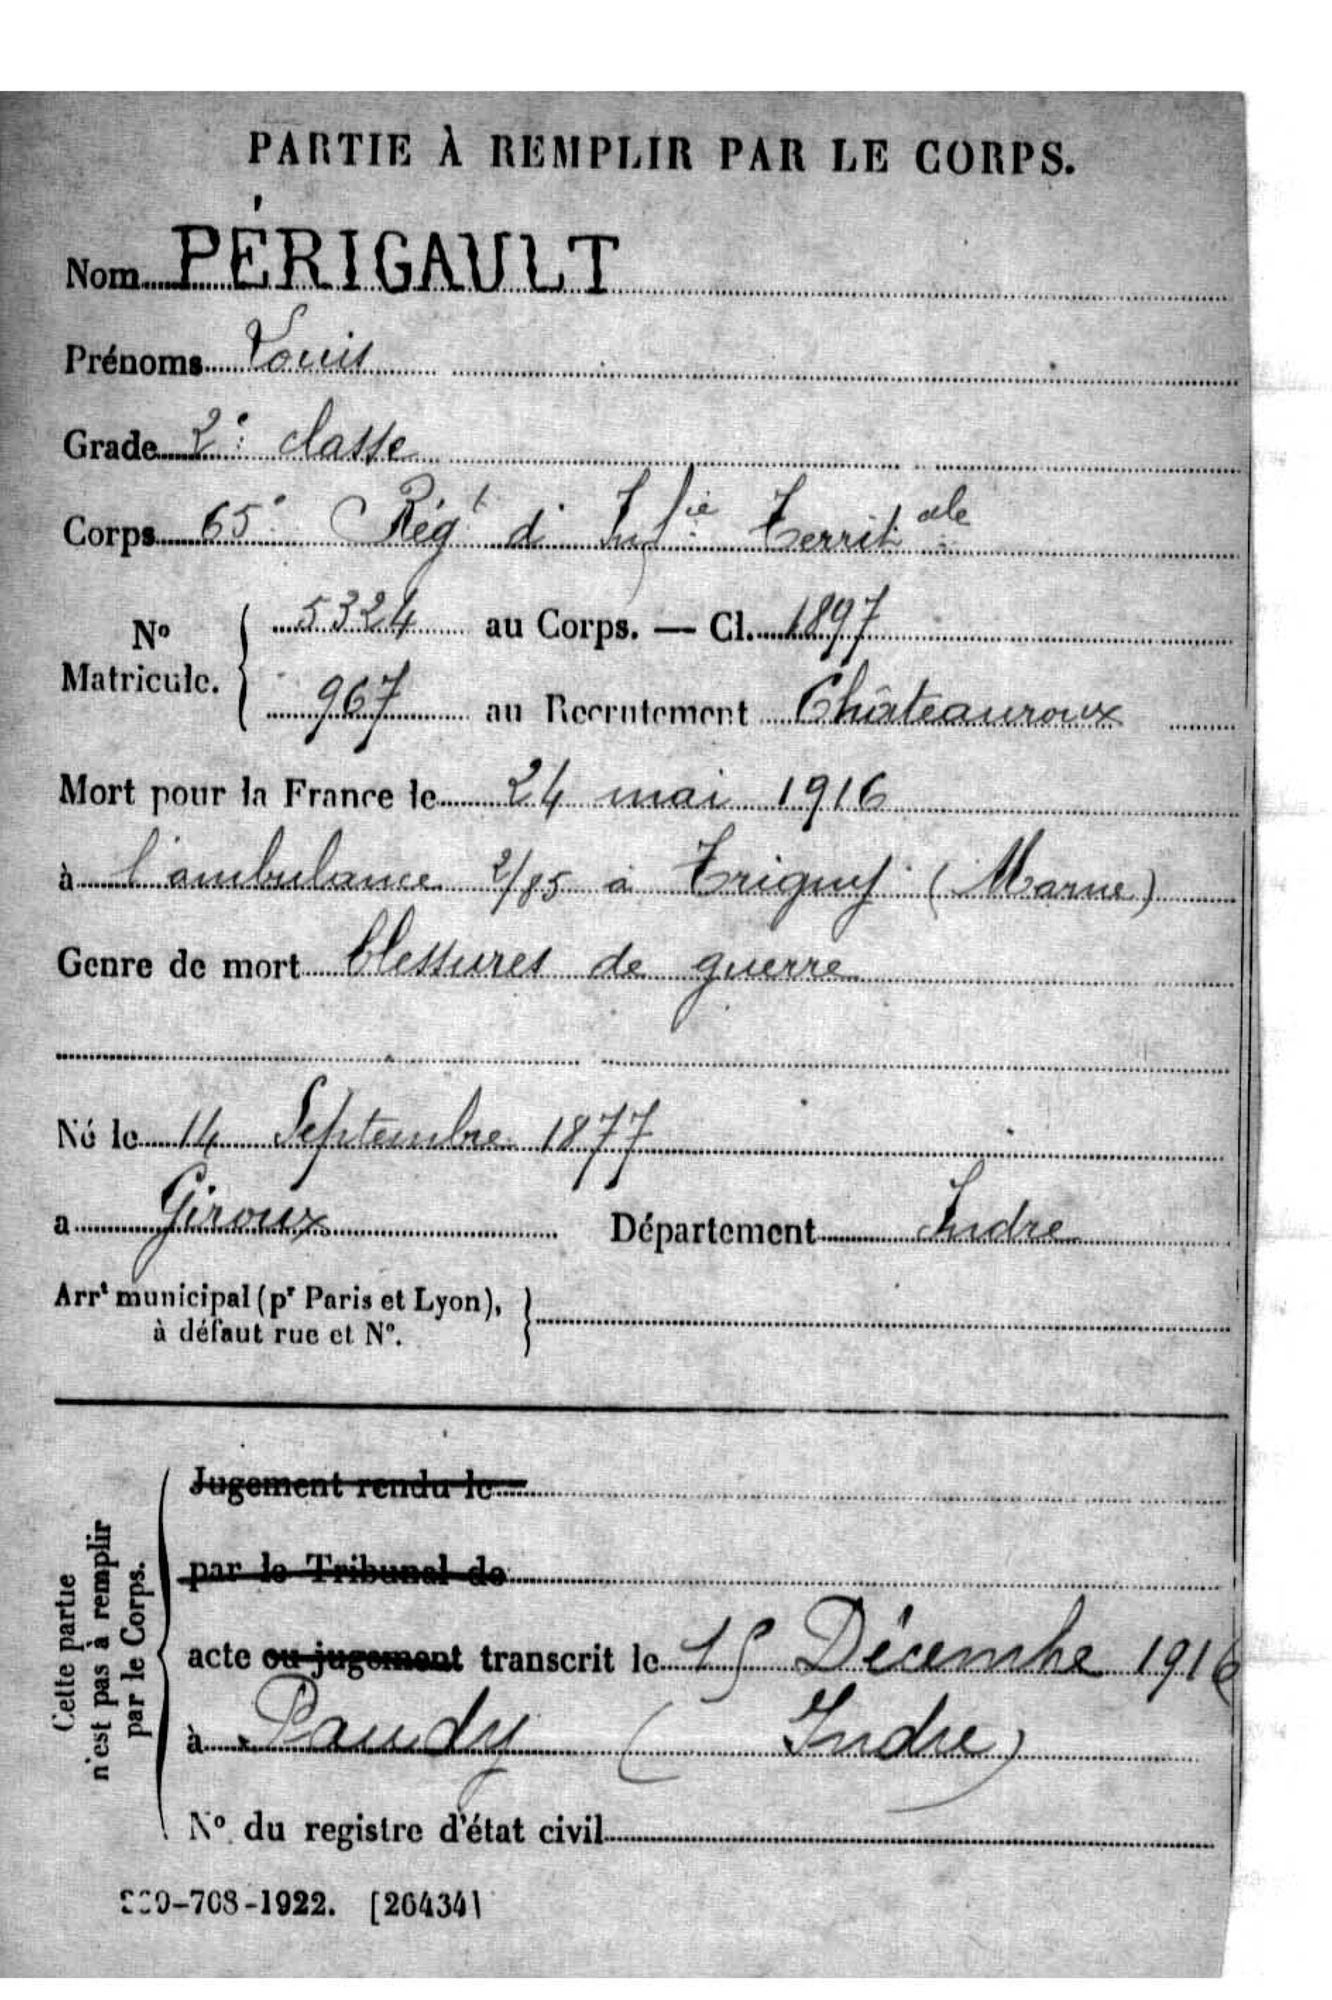 PARTIE À REMPLIR PAR LE CORPS.
Nom PÉRIGAULT
Prénoms Louis
Grade 2e classe
Corps 65e Régt d'Infie Territale
No Matricule. 5324 au Corps. — Cl. 1897
967 au Recrutement Châteauroux
Mort pour la France le 24 mai 1916
à l'ambulance 2/85 à Trigny (Marne)
Genre de mort blessures de guerre
Né le 14 Septembre 1877
a Giroux Département Indre
Arrt municipal (pr Paris et Lyon),
à défaut rue et No.
Cette partie
n'est pas à remplir
par le Corps.
Jugement rendu le
par le Tribunal de
acte ou jugement transcrit le 15 Décembre 1916
à Paudy (Indre)
No du registre d'état civil
-708-1922. [26434]